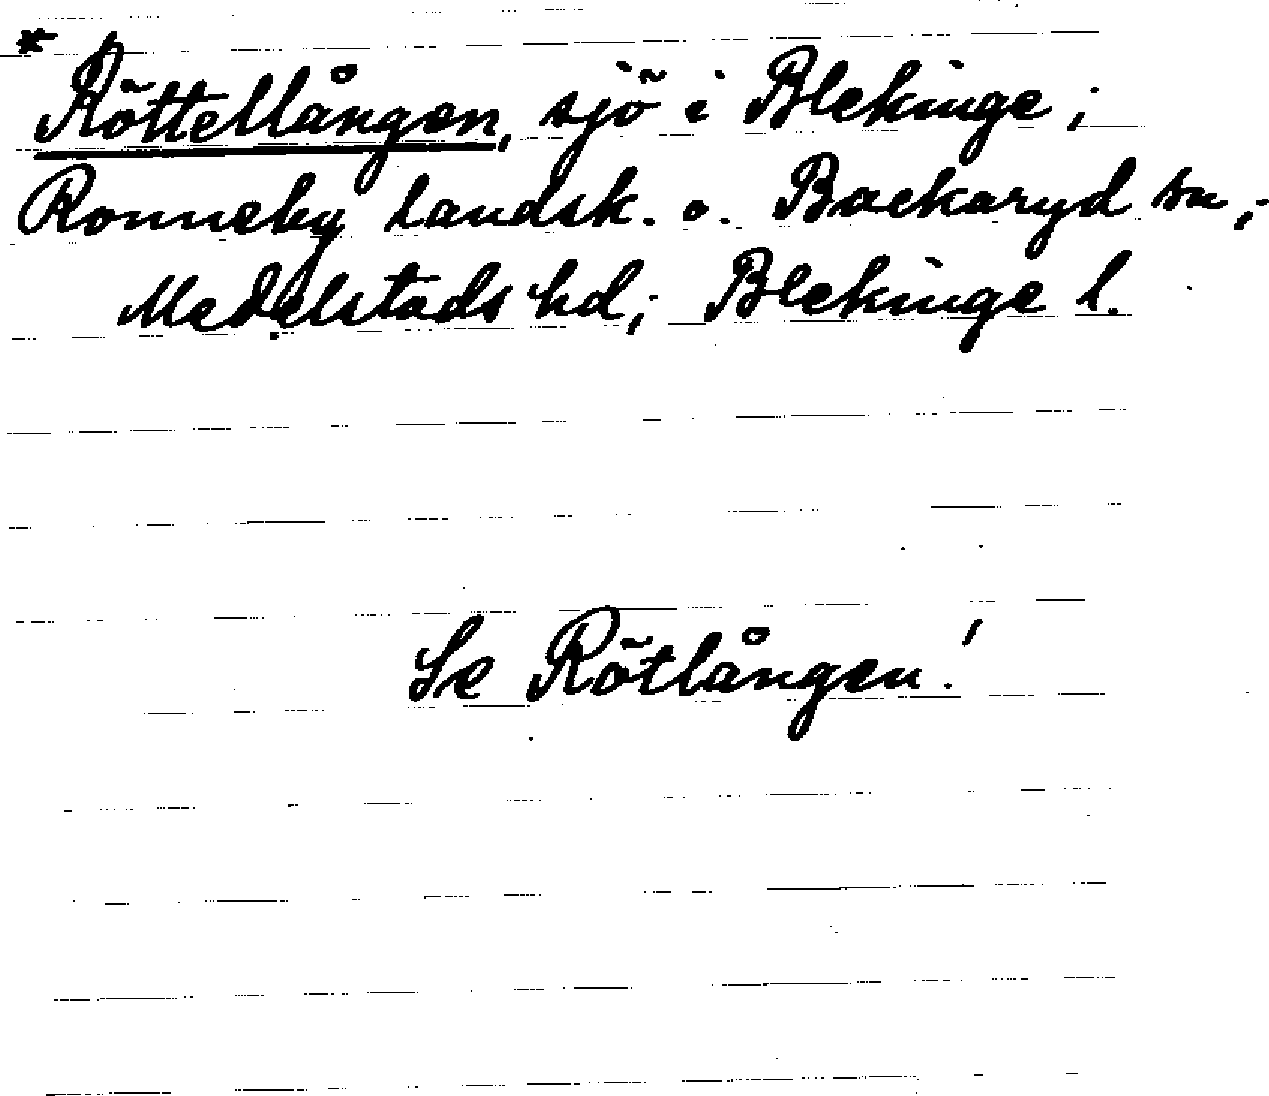 * Röttellången, sjö i Blekinge;
Ronneby landsk. o. Backaryd sn,
Medelstads hd, Blekinge l.
Se Rötlången!